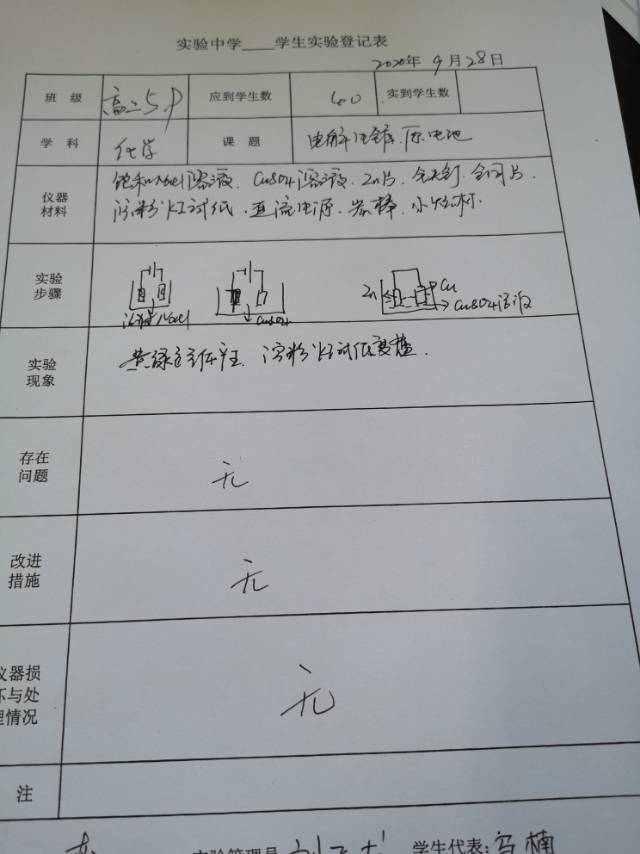 实验中学____学生实验登记表
2020年 9月28日
班 级 高二5、9 应到学生数 60 实到学生数
学 科 化学 课 题 电解池 原电池
仪器材料 饱和NaCl溶液、CuSO4溶液、Zn片、铁钉、铜片
淀粉KI试纸、直流电源、炭棒、小烧杯.
实验步骤
NaCl CuSO4 Zn Cu CuSO4溶液
实验现象 黄绿色气体产生、淀粉KI试纸变蓝.
存在问题 无
改进措施 无
仪器损坏与处理情况 无
注
实验管理员 学生代表:马楠